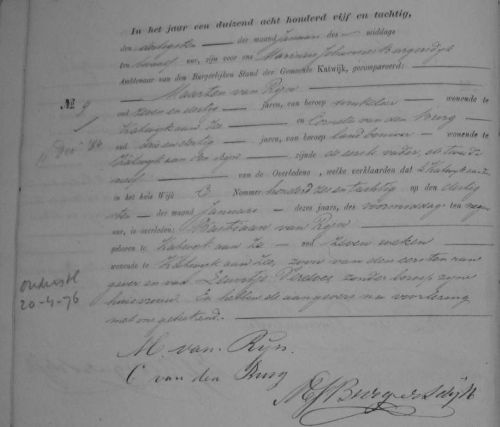 In het jaar een duizend acht honderd vijf en tachtig,
den — der maand Januari des — middags
ten twaalf ure, zijn voor ons Marinus Johannes Burgersdijk
Ambtenaar van den Burgerlijken Stand der Gemeente Katwijk, gecompareerd:
№ 9
Maarten van Rijn
oud zeven en dertig jaren, van beroep winkelier wonende te
Katwijk aan Zee en Cornelis van den Burg
oud drie en dertig jaren, van beroep landbouwer wonende te
Katwijk aan den Rijn zijnde de eerste vader, de tweede
neef van de Overledene, welke verklaarden dat te Katwijk aan Zee
in het huis Wijk B Nommer honderd zes en tachtig op den dertig
sten der maand Januari dezes jaars, des voormiddags ten negen
ure, is overleden: Bastiaan van Rijn
geboren te Katwijk aan Zee oud zeven weken
wonende te Katwijk aan Zee, zoon van den eersten aan
gever en van Leuntje Verdoes zonder beroep zijne
huisvrouw. En hebben de aangevers na voorlezing
met ons geteekend.
20-4-76
M. van Rijn.
C van den Burg
MJBurgersdijk